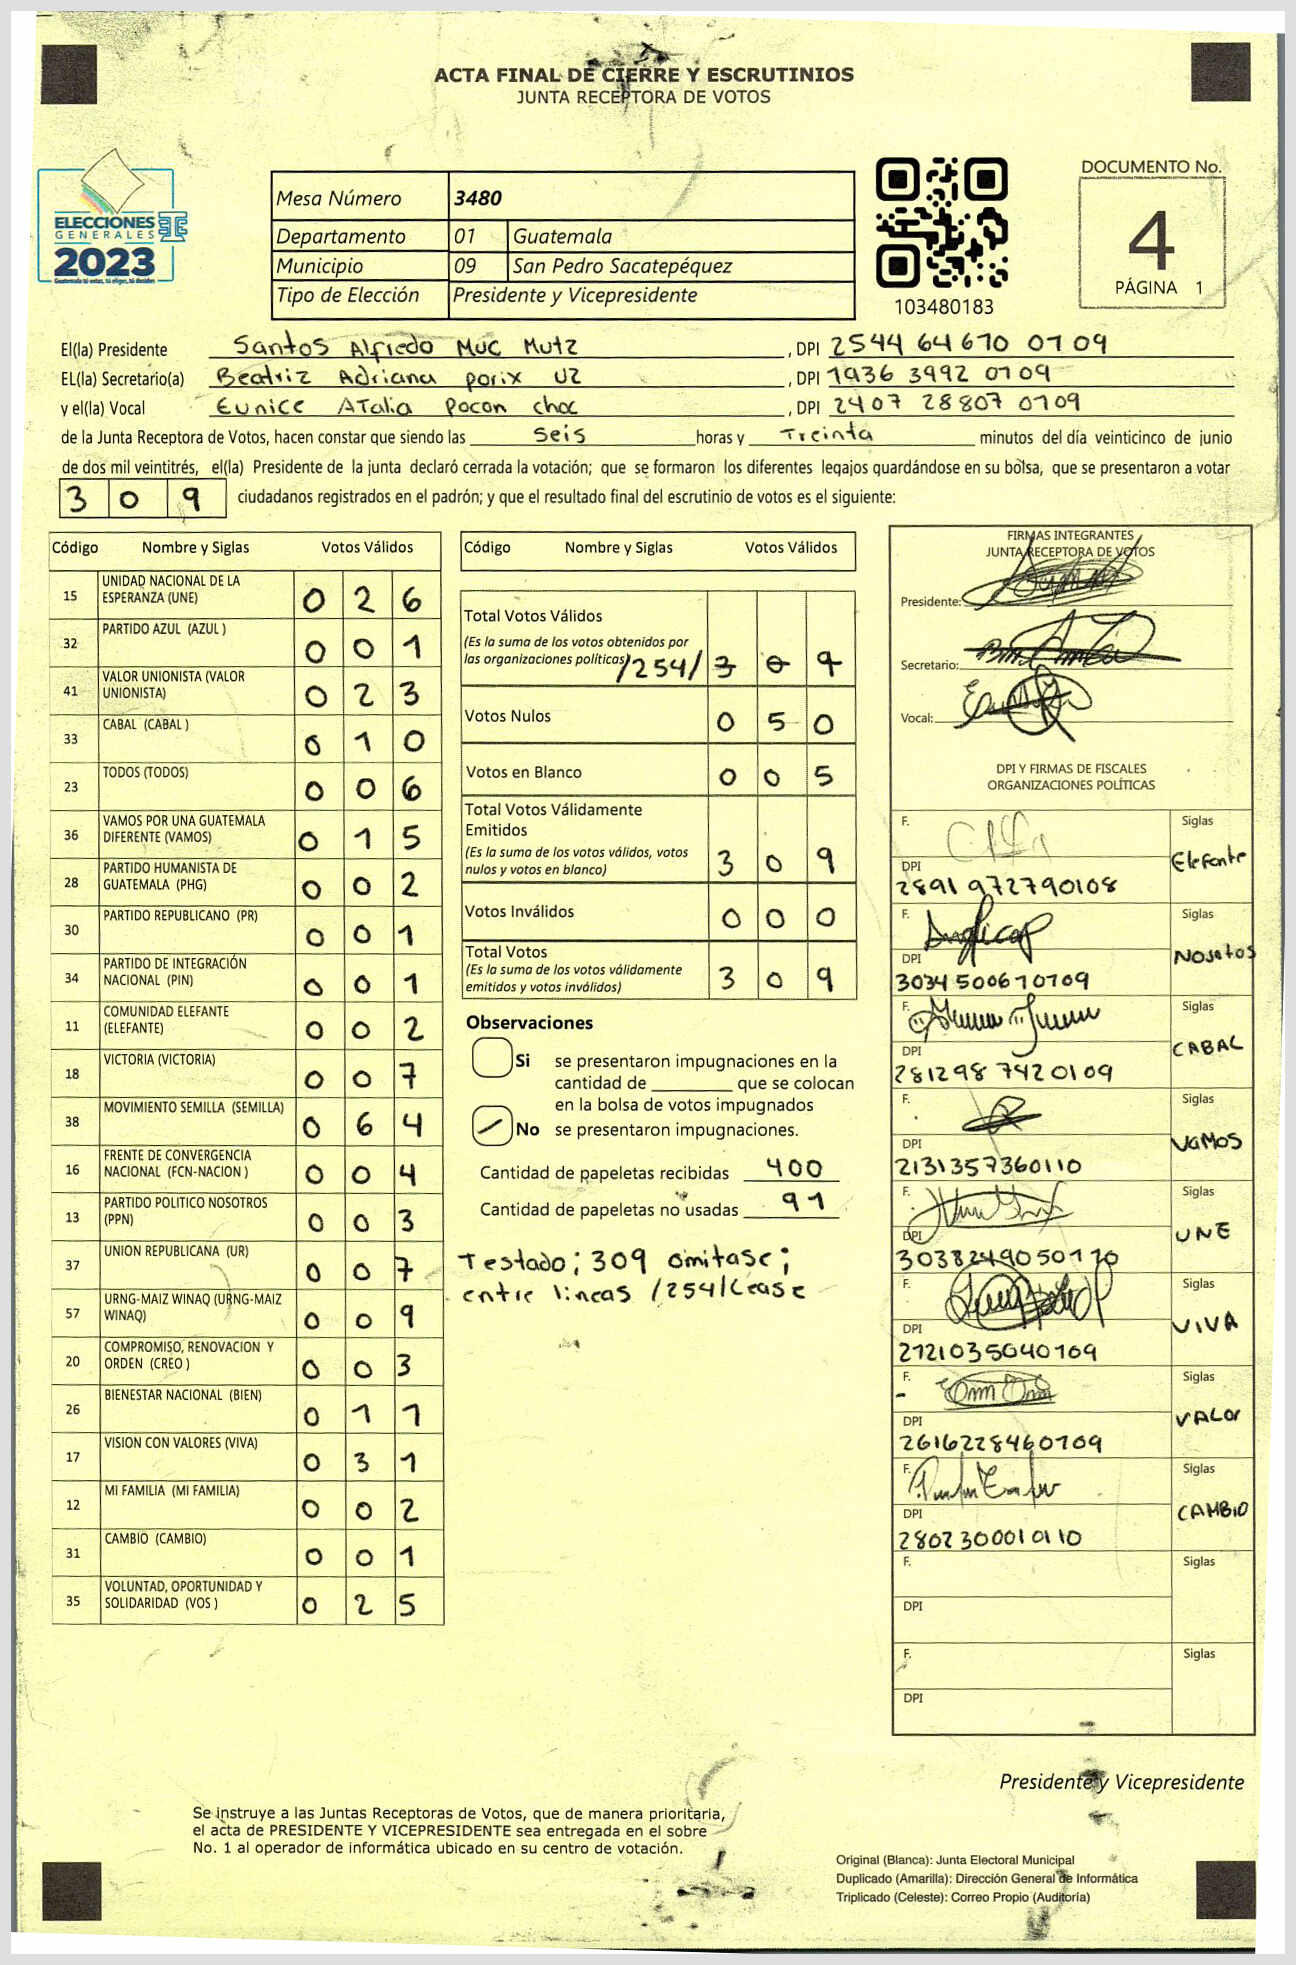 ACTA FINAL DE CIERRE Y ESCRUTINIOS
JUNTA RECEPTORA DE VOTOS
ELECCIONES
GENERALES
2023
Guatemala tú votas, tú eliges, tú decides
Mesa Número 3480
Departamento 01 Guatemala
Municipio 09 San Pedro Sacatepéquez
Tipo de Elección Presidente y Vicepresidente
103480183
DOCUMENTO No.
4
PÁGINA 1
El(la) Presidente Santos Alfredo Muc Mutz, DPI 2544 64670 0109
EL(la) Secretario(a) Beatriz Adriana porix UZ, DPI 1936 3992 0109
y el(la) Vocal Eunice ATalia Pocon choc, DPI 2407 28807 0109
de la Junta Receptora de Votos, hacen constar que siendo las seis horas y Treinta minutos del día veinticinco de junio
de dos mil veintitrés, el(la) Presidente de la junta declaró cerrada la votación; que se formaron los diferentes legajos guardándose en su bolsa, que se presentaron a votar
309 ciudadanos registrados en el padrón; y que el resultado final del escrutinio de votos es el siguiente:
Código Nombre y Siglas Votos Válidos
15 UNIDAD NACIONAL DE LA ESPERANZA (UNE) 0 2 6
32 PARTIDO AZUL (AZUL ) 0 0 1
41 VALOR UNIONISTA (VALOR UNIONISTA) 0 2 3
33 CABAL (CABAL ) 0 1 0
23 TODOS (TODOS) 0 0 6
36 VAMOS POR UNA GUATEMALA DIFERENTE (VAMOS) 0 1 5
28 PARTIDO HUMANISTA DE GUATEMALA (PHG) 0 0 2
30 PARTIDO REPUBLICANO (PR) 0 0 1
34 PARTIDO DE INTEGRACIÓN NACIONAL (PIN) 0 0 1
11 COMUNIDAD ELEFANTE (ELEFANTE) 0 0 2
18 VICTORIA (VICTORIA) 0 0 7
38 MOVIMIENTO SEMILLA (SEMILLA) 0 6 4
16 FRENTE DE CONVERGENCIA NACIONAL (FCN-NACION ) 0 0 4
13 PARTIDO POLITICO NOSOTROS (PPN) 0 0 3
37 UNION REPUBLICANA (UR) 0 0 7
57 URNG-MAIZ WINAQ (URNG-MAIZ WINAQ) 0 0 9
20 COMPROMISO, RENOVACION Y ORDEN (CREO ) 0 0 3
26 BIENESTAR NACIONAL (BIEN) 0 1 1
17 VISION CON VALORES (VIVA) 0 3 1
12 MI FAMILIA (MI FAMILIA) 0 0 2
31 CAMBIO (CAMBIO) 0 0 1
35 VOLUNTAD, OPORTUNIDAD Y SOLIDARIDAD (VOS ) 0 2 5
Código Nombre y Siglas Votos Válidos
Total Votos Válidos
(Es la suma de los votos obtenidos por
las organizaciones políticas) /254/ 3 0 9
Votos Nulos 0 5 0
Votos en Blanco 0 0 5
Total Votos Válidamente
Emitidos
(Es la suma de los votos válidos, votos
nulos y votos en blanco) 3 0 9
Votos Inválidos 0 0 0
Total Votos
(Es la suma de los votos válidamente
emitidos y votos inválidos) 3 0 9
Observaciones
Si se presentaron impugnaciones en la
cantidad de ________ que se colocan
en la bolsa de votos impugnados
No se presentaron impugnaciones.
Cantidad de papeletas recibidas 400
Cantidad de papeletas no usadas 91
Testado; 309 omitase;
entre lineas /254/Lease
FIRMAS INTEGRANTES
JUNTA RECEPTORA DE VOTOS
Presidente:
Secretario:
Vocal:
DPI Y FIRMAS DE FISCALES
ORGANIZACIONES POLÍTICAS
F. Siglas Elefante
DPI 2891 972790108
F. Siglas Nosotos
DPI 3034500670109
F. Siglas CABAL
DPI 2812987420109
F. Siglas VaMOS
DPI 2131357360110
F. Siglas UNE
DPI 3038249050110
F. Siglas VIVA
DPI 2121035040109
F. Siglas VALOr
DPI 2616228460109
F. Siglas CAMBIO
DPI 2802300010110
F. Siglas
DPI
F. Siglas
DPI
Presidente y Vicepresidente
Se instruye a las Juntas Receptoras de Votos, que de manera prioritaria,
el acta de PRESIDENTE Y VICEPRESIDENTE sea entregada en el sobre
No. 1 al operador de informática ubicado en su centro de votación.
Original (Blanca): Junta Electoral Municipal
Duplicado (Amarilla): Dirección General de Informática
Triplicado (Celeste): Correo Propio (Auditoría)